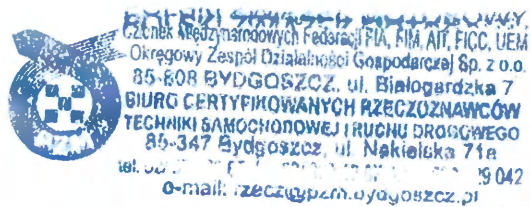 POLSKI ZWIĄZEK MOTOROWY
Członek Międzynarodowych Federacji FIA, FIM, AIT, FICC, UEM
Okręgowy Zespół Działalności Gospodarczej Sp. z o.o.
85-808 BYDGOSZCZ, ul. Białogardzka 7
BIURO CERTYFIKOWANYCH RZECZOZNAWCÓW
TECHNIKI SAMOCHODOWEJ I RUCHU DROGOWEGO
85-347 Bydgoszcz, ul. Nakielska 71a
tel. 9 042
e-mail: rzecz@pzm.bydgoszcz.pl